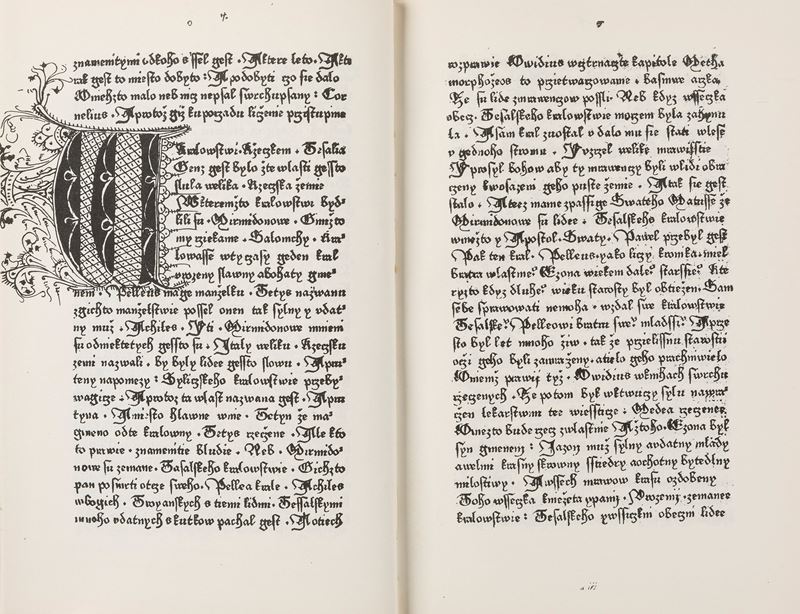 znamenitymi odkoho s'ssel gest · Aktere leto · Akto
rak gest to miesto dobyto : Apodobyti czo sie dalo
Omehzto malo neb nicz nepsal swrchupsany : Cor
nelius · Aprotoz giz ku porzadu lizeme przistupme
Wkralowstwi · Rzeczkem · Tesalia
Genz gest bylo zte wlasti gessto
slula welika · Rzeczka zemie
Wkteremzto kralowstwi byd
lili su · Mirmidonowe · Gmizto
my rziekame · Salomchy · Kra
lowasse wty czasy geden kral
vrozeny slawny abohaty gme
nem · Pelleus mage manzelku · Tetys nazwanu
zgichzto manzelstwie possel onen tak sylny y vdat
ny muz · Achiles · Yti · Mirmidonowe mnieni
su odniekterych gessto su · Italy weliku · Rzeczku
zemi nazwali · by byly lidee gessto slowu · Apru
teny napomezy : Syliczskeho kralowstwie przeby
wagicze : Aprotoz ta wlast nazwana gest · Apru
tyna · Amiesto hlawne wnie · Tetyn ze ma
gmeno odte kralowny · Tetys rzeczene · Alle kto
to prawie · znamenitie bludie · Neb · Mirmido
nowe su zemane · Tesalskeho kralowstwie · Gichzto
pan po smrti otcze sweho · Pellea krale · Achiles
wbogich · Troyanskych s tiemi lidmi · Tessalskymi
mnoho vdatnych skutkow pachal gest · Atotiech
rozprawie Owidius wgtrnaczte kapitole Metha
morphozeos to przetwarowanie · basniwe arzka
Ze su lide zmrawenczow possli · Neb kdyz wsseczka
obecz · Tesalskeho kralowstwie morem byla zahynu
la · Asam kral zuostal o dalo mu sie stati wlese
v gednoho stromu · Yvzrzel welike mrawisstie
Yprosyl bohow aby ty mrawenczy byli wlidi obra
czeny kwosazeni geho puste zemie · Atak sie gest
stalo · Atez mame zpassige Swateho Matusse ze
Mirmidonowe su lidee · Tesalskeho kralowstwie
wniezto y Apostol · Swaty · Pawel przebyl gest
Pak ten kral · Pelleus · yako liczy kronika · miel
bratra wlastnie · Ezona wiekem dale starssie · Kte
ryzto kdyz dluhe wieku starosty byl obtiezen · Sam
sebe sprawowati nemoha · wzdal swe kralowstwie
Tesalske · Pelleowi bratru swe mladssi · Aprze
sto byl let mnoho ziw · tak ze przielissnu starosti
oczi geho byli zamrazeny · atielo geho prachniwielo
Oniemz prawi tyz · Owidius wknihach swrchu
rzeczenych · Ze potom byl wktwuczy sylu naprawe
czen lekarstwim tee wiesstice : Medea rzeczenee
Oniezto bude rzecz zwlastnie Aztoho · Ezona byl
syn gmenem : Jazon muz sylny avdatny mlady
awelmi krasny skrowny sstiedry aochotny bytedlny
milostiwy · Awssech mrawow krasu ozdobeny
Toho wsseczka kniezata ypani · Vrozeni · zemanee
kralowstwie : Tesalskeho ywssiczkni obeczni lidee
a iii